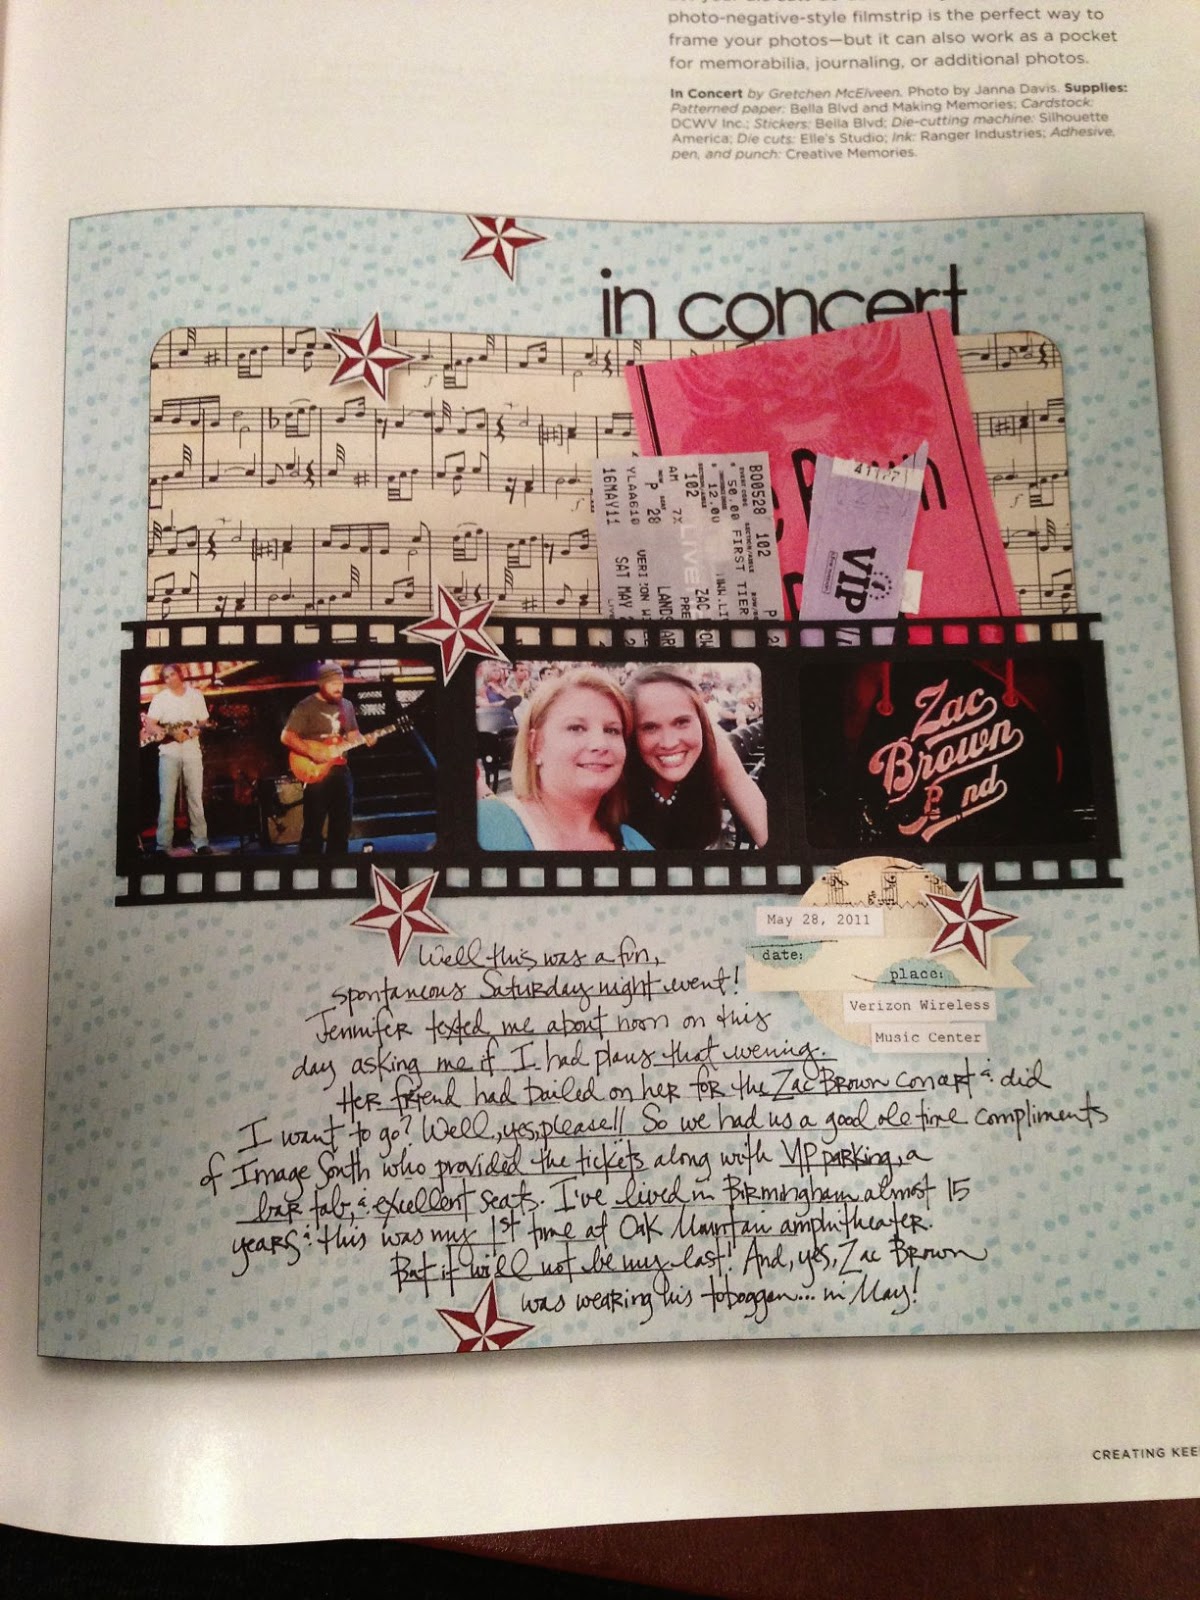 photo-negative-style filmstrip is the perfect way to
frame your photos—but it can also work as a pocket
for memorabilia, journaling, or additional photos.
In Concert by Gretchen McElveen. Photo by Janna Davis. Supplies:
Patterned paper: Bella Blvd and Making Memories; Cardstock:
DCWV Inc.; Stickers: Bella Blvd; Die-cutting machine: Silhouette
America; Die cuts: Elle's Studio; Ink: Ranger Industries; Adhesive,
pen, and punch: Creative Memories.
in concert
BO0528 102
50.00 FIRST TIER
12.00
102
AM 7X
P 28
YLAA610
16MAY11
SAT MAY
VIP
Zac
Brown
Band
May 28, 2011
date:
place:
Verizon Wireless
Music Center
Well this was a fun,
spontaneous Saturday night event!
Jennifer texted me about noon on this
day asking me if I had plans that evening.
Her friend had bailed on her for the Zac Brown concert & did
I want to go? Well, yes, please!! So we had us a good ole time compliments
of Image South who provided the tickets along with VIP parking, a
bar tab, & excellent seats. I've lived in Birmingham almost 15
years & this was my 1st time at Oak Mountain amphitheater.
But it will not be my last! And, yes, Zac Brown
was wearing his toboggan... in May!
CREATING KEE